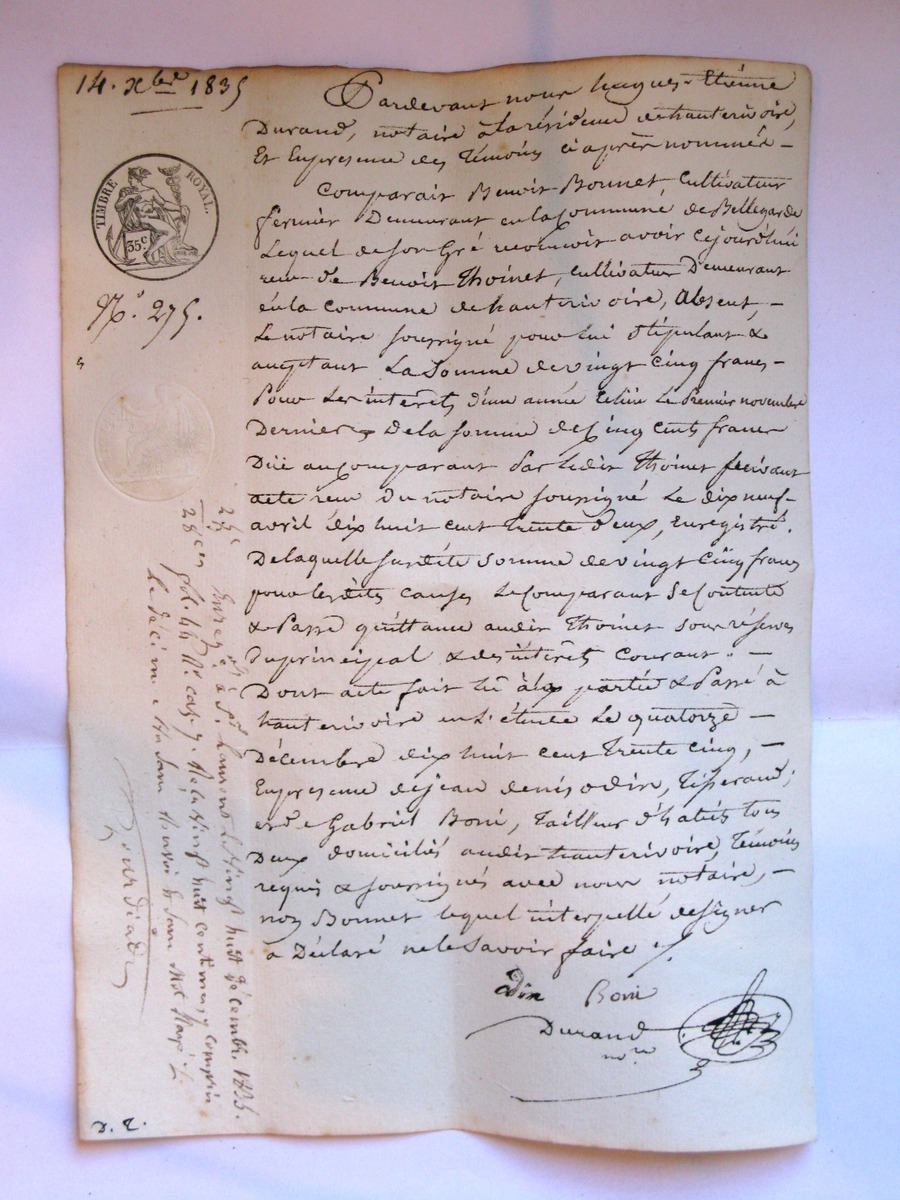 14. xbre 1835
TIMBRE ROYAL.
35c.
N.° 275.
Pardevant nous hugues-Etienne
Durand, notaire à la résidence de hauterivoire,
Et En presence des Témoins ci après nommés -
Comparait Benoit Bonnet, Cultivateur
fermier Demeurant en la Commune de Bellegarde
Lequel de son Gré reconnoit avoir Cejourd'hui
reçu de Benoit Thoinet, Cultivateur Demeurant
en la commune de hauterivoire, Absent, -
Le notaire soussigné pour lui stipulant &
acceptant La Somme de vingt cinq francs -
Pour Les interêts d'une année Echue Le Premier novembre
Dernier De la somme de Cinq Cents francs
Düe au Comparant Par ledit Thoinet suivant
acte reçu du notaire soussigné Le dix neuf
avril dix huit cent trente deux, Enregistré.
De laquelle susdite somme de vingt Cinq francs
pour lesdites causes Le Comparant Se Contente
& Passe quittance audit Thoinet sous réserves
du principal & des interêts courant. -
Dont acte fait lû aux parties & Passé à
hauterivoire en l'étude Le quatorze -
Décembre dix huit Cent Trente Cinq, -
En presence de jean denis odin, Tisserand,
et de Gabriel Boni, Tailleur d'habits tous
Deux domiciliés audit hauterivoire, Témoins
requis & soussignés avec nous notaire, -
non Bonnet lequel interpellé de signer
a Déclaré ne le Savoir faire ./.
Odin Boni
Durand
nre
Enreg. à St Laurent le vingt huit décembre 1835.
vingt huit contenant
Le décime
Bourdiadz
D. T.